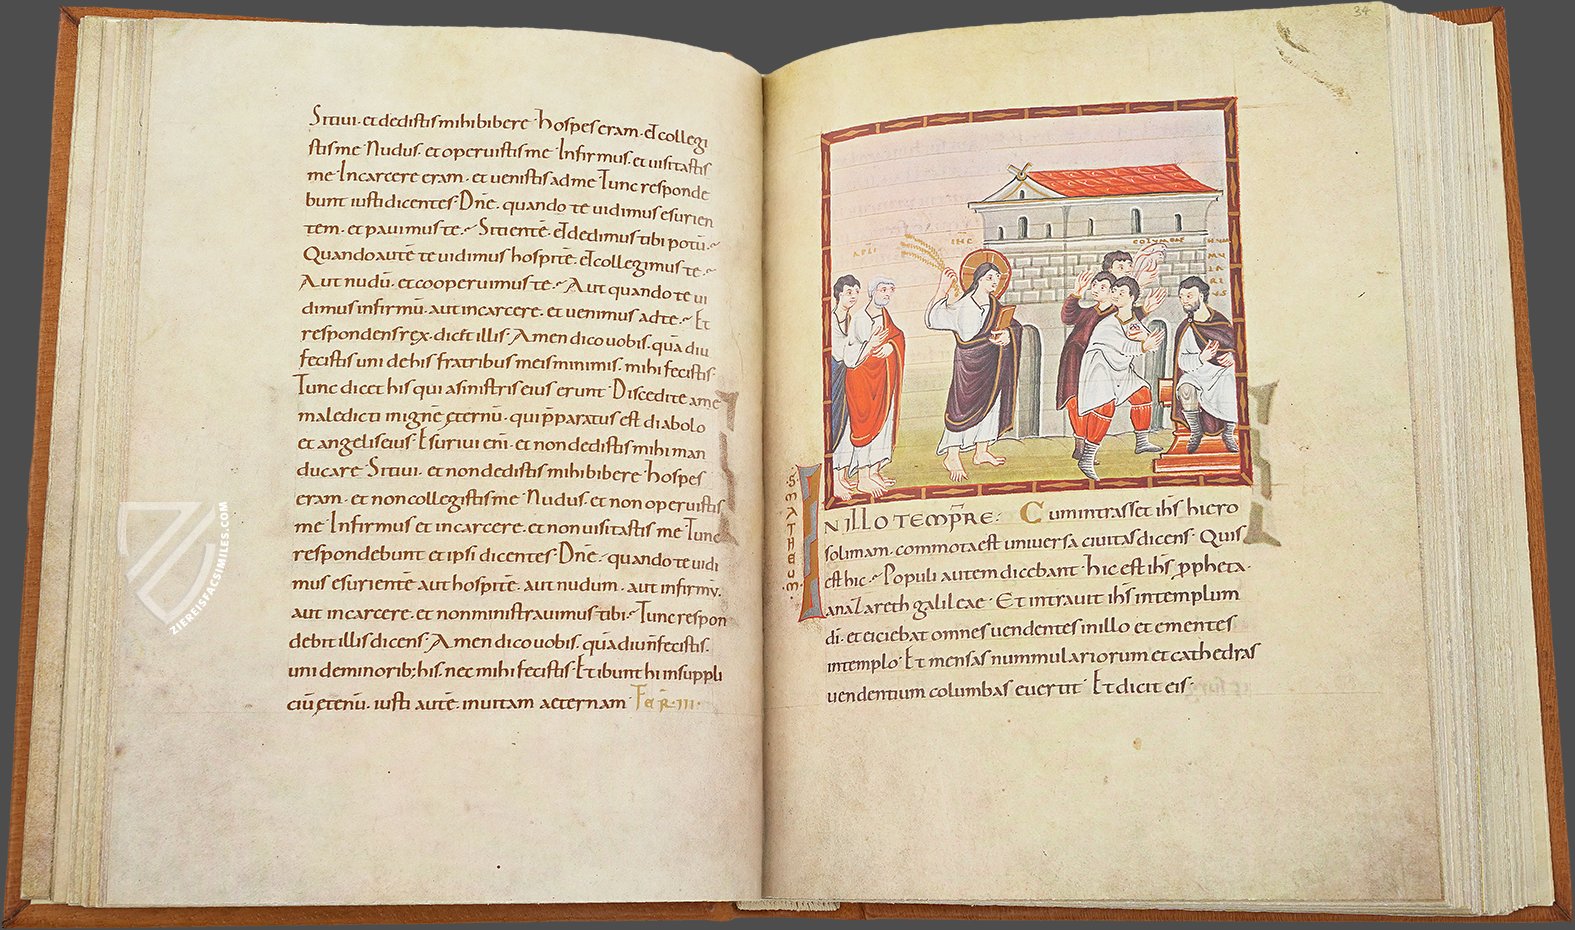 Sitiui· et dedistis mihi bibere· hospes eram· et collegi
stis me· Nudus· et operuistis me· Infirmus· et uisitastis
me· Incarcere eram· et uenistis ad me· Tunc responde
bunt iusti dicentes· Dn̄e· quando te uidimus esurien
tem· et pauimus te· Sitientē· et dedimus tibi potū·
Quando autē te uidimus hospitē· et collegimus te·
Aut nudū· et cooperuimus te· Aut quando te ui
dimus infirmū· aut incarcere· et uenimus ad te· Et
respondens rex· dicet illis· Amen dico uobis· quādiu
fecistis uni de his fratribus meis minimis· mihi fecistis
Tunc dicet his qui a sinistris eius erunt· Discedite a me
maledicti in ignē ęternū· qui p̄paratus est diabolo
et angelis eius· Esuriui em̄· et non dedistis mihi man
ducare· Sitiui· et non dedistis mihi bibere· hospes
eram· et non collegistis me· Nudus· et non operuistis
me· Infirmus et incarcere· et non uisitastis me· Tunc
respondebunt et ipsi dicentes· Dn̄e· quando te uidi
mus esurientē aut hospitē· aut nudum· aut infirmū·
aut incarcere· et non ministrauimus tibi· Tunc respon
debit illis dicens· Amen dico uobis· quādiu n̄ fecistis·
uni de minorib; his· nec mihi fecistis· Et ibunt hi in suppli
ciū ęternū· iusti autē· in uitam aeternam· Fer̄·III·
34
APLI
IHC
COLVMBE
NUMMULARIUS
S MATHEUM·
IN ILLO TEMPR̄E· Cum intrasset ih̄s hiero
solimam· commota est uniuersa ciuitas dicens· Quis
est hic· Populi autem dicebant· hic est ih̄s ꝓpheta·
a nazareth galileae· Et intrauit ih̄s in templum
di· et eiciebat omnes uendentes in illo et ementes
in templo· Et mensas nummulariorum et cathedras
uendentium columbas euertit· Et dicit eis·
ZIEREISFACSIMILES.COM